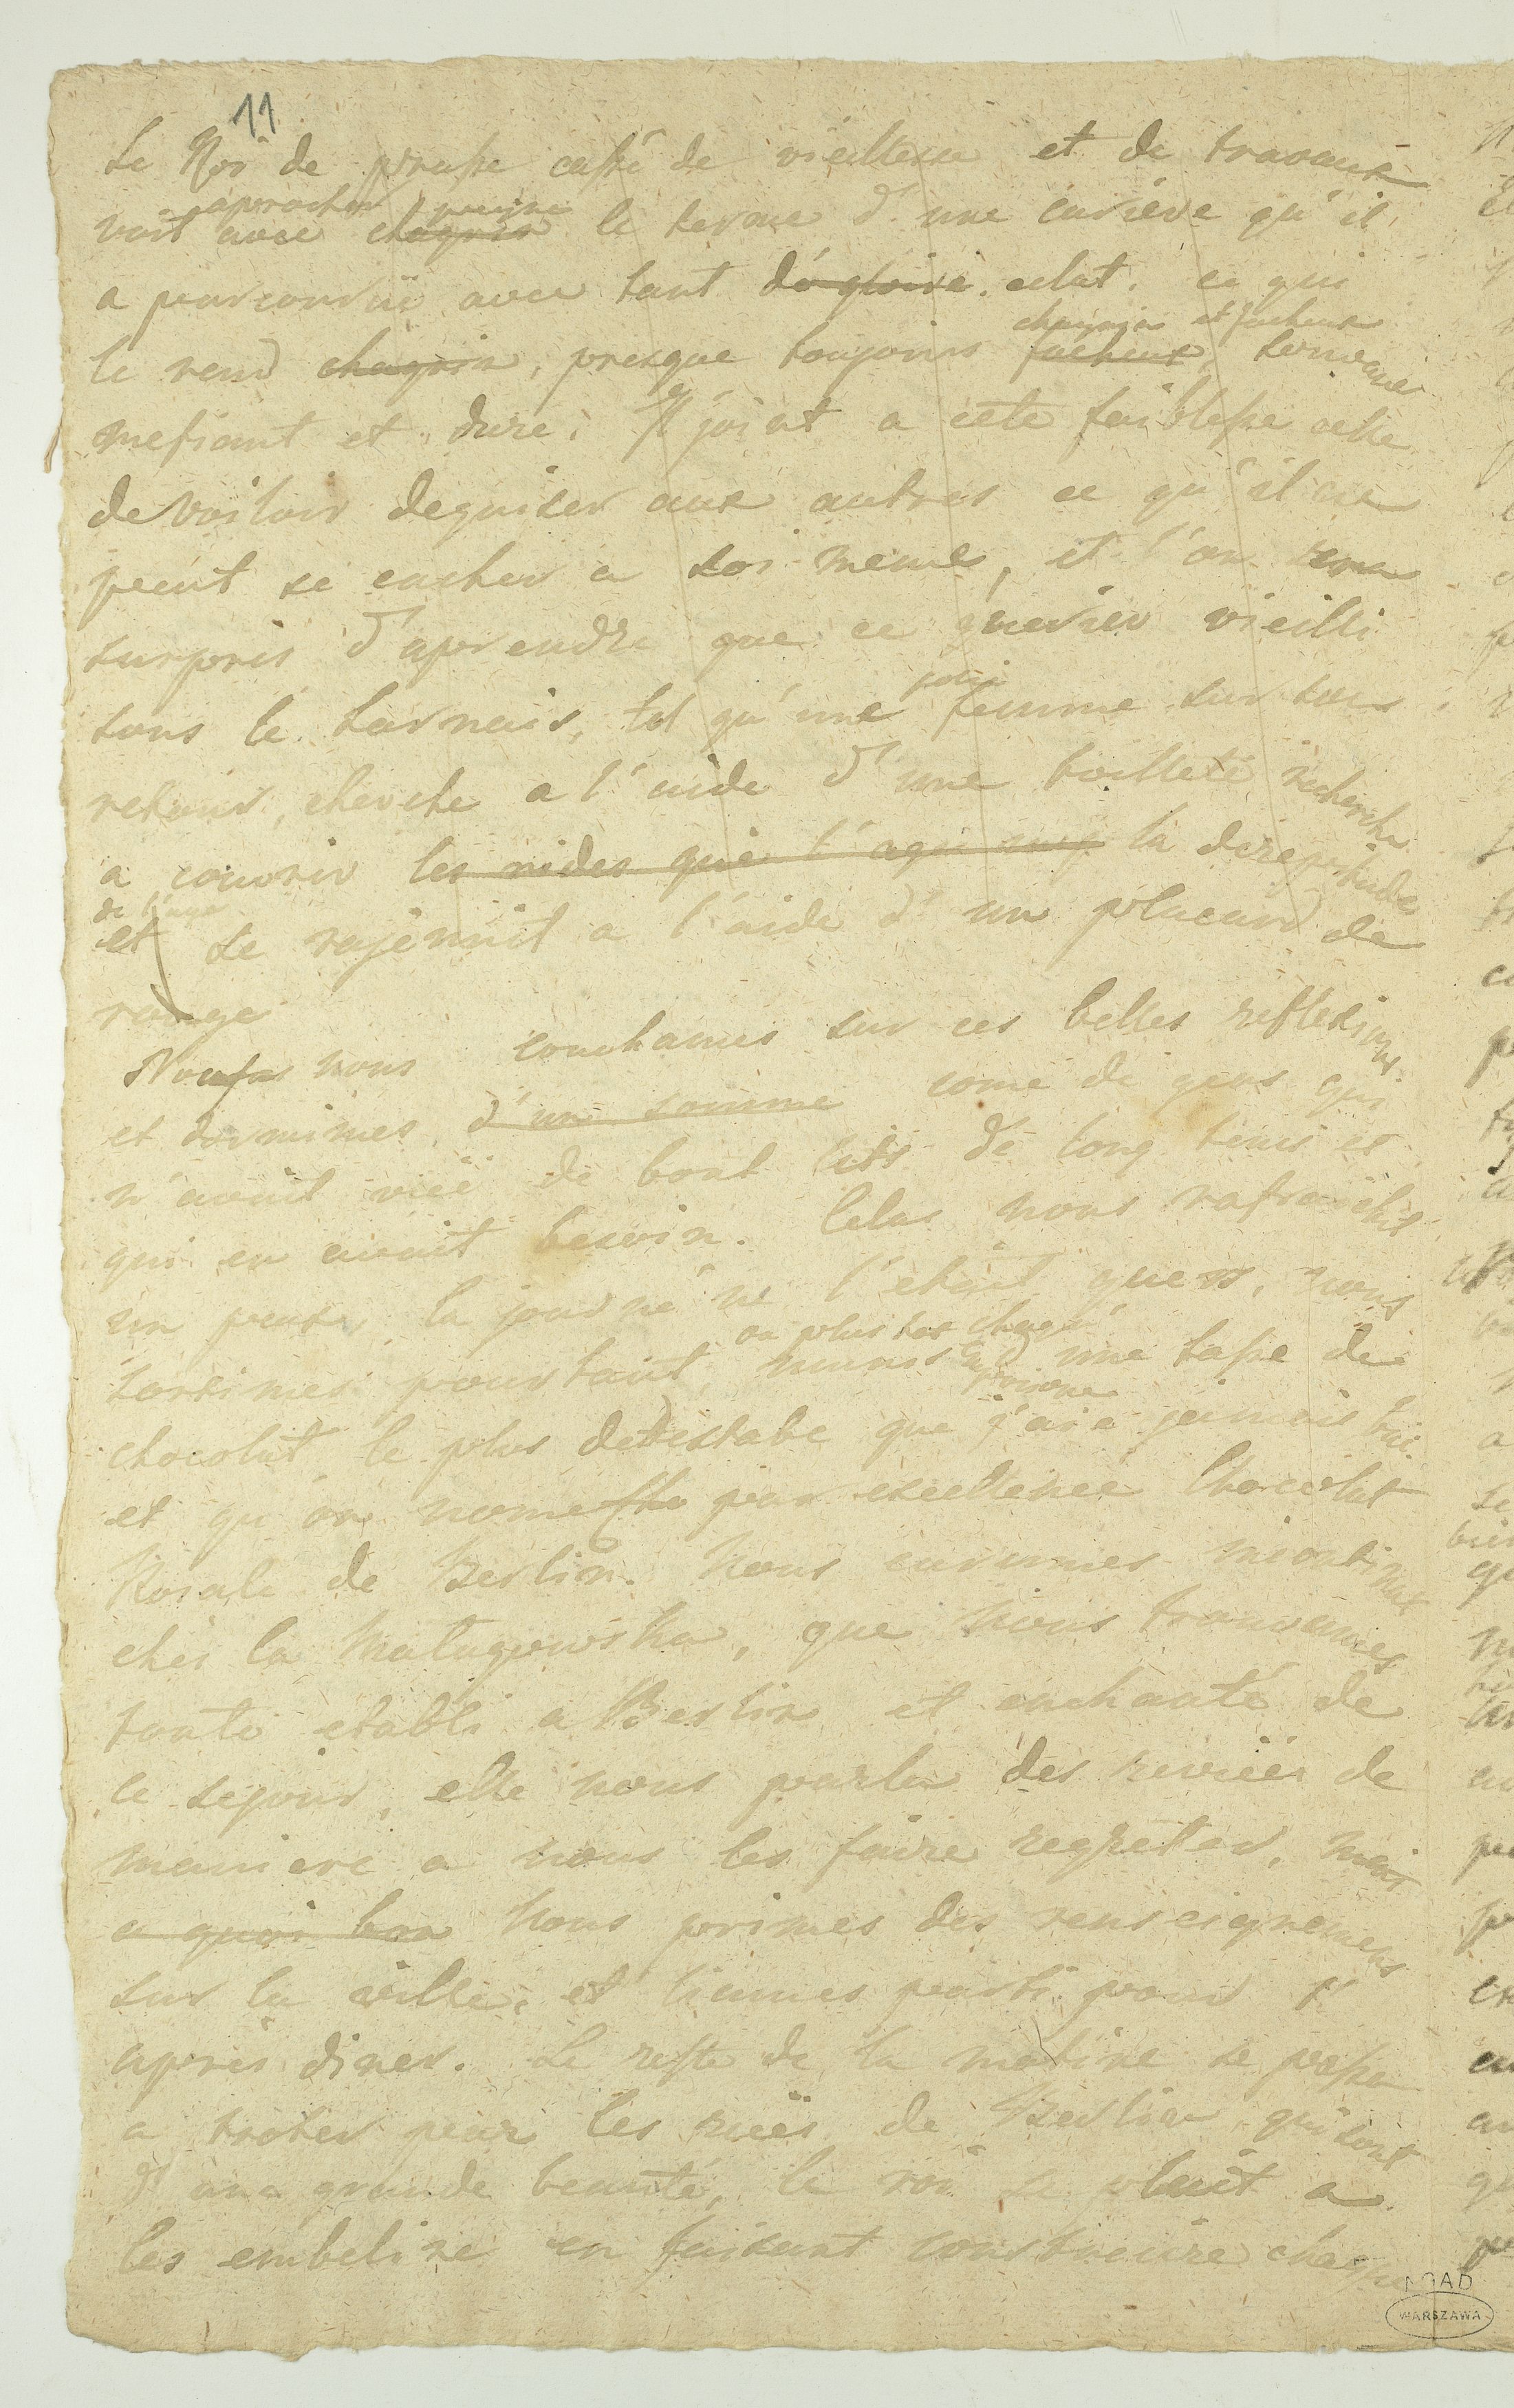 11
Le Roi de prusse cassé de vieillesse et de travaux
aprocher peigne
voit avec chagrin le terme d'une cariere qu'il
a parcouruë avec tant de gloire. eclat. ce qui
chagrin et facheux
le rend chagrin, presque toujours facheux,
mefiant et dure. Il joint a cete faiblesse celle
de voiloir deguiser aux autres ce qu'il ne
peut se cacher a soi meme, et l'on
surpris d'aprendre que ce guerier vieilli
jolie
sous le harnais, tel qu'une femme sur son
retour, cherche a l'aide d'une toillete recherche
a couvrir les rides que l'age la direpitude
de l'age
et se rajeunit a l'aide d'un placard de
rouge
Nous nous couchames sur ces belles reflexions
et dormimes d'un somme come de gens qui
n'avoit vuë de bont lits de long tems et
qui en avoit besoin. Celas nous rafraichit
un peux, la journé ne l'etoit guers, nous
ou plus tot chargé
sortimes pourtant, munis d'une tasse de
poisone
chocolat le plus detestabe que j'aie jamais bue
et qu'on nome par excellence Chocolat
Roiale de Berlin. Nous courumes incontinent
ches la Malagowska, que nous trouvames
toute etabli a Berlin et enchanté de
ce sejour, elle nous parla des revuës de
maniere a nous les faire regreter, mais
a quoi bon Nous primes des renseignemens
sur la ville, et liames parti pour l'
apres diner. Le reste de la matine se passa
a troter par les ruës de Berlin qui sont
d'une grande beauté, le roi se plait a
les embelire en faisant construire chaque
AGAD
WARSZAWA